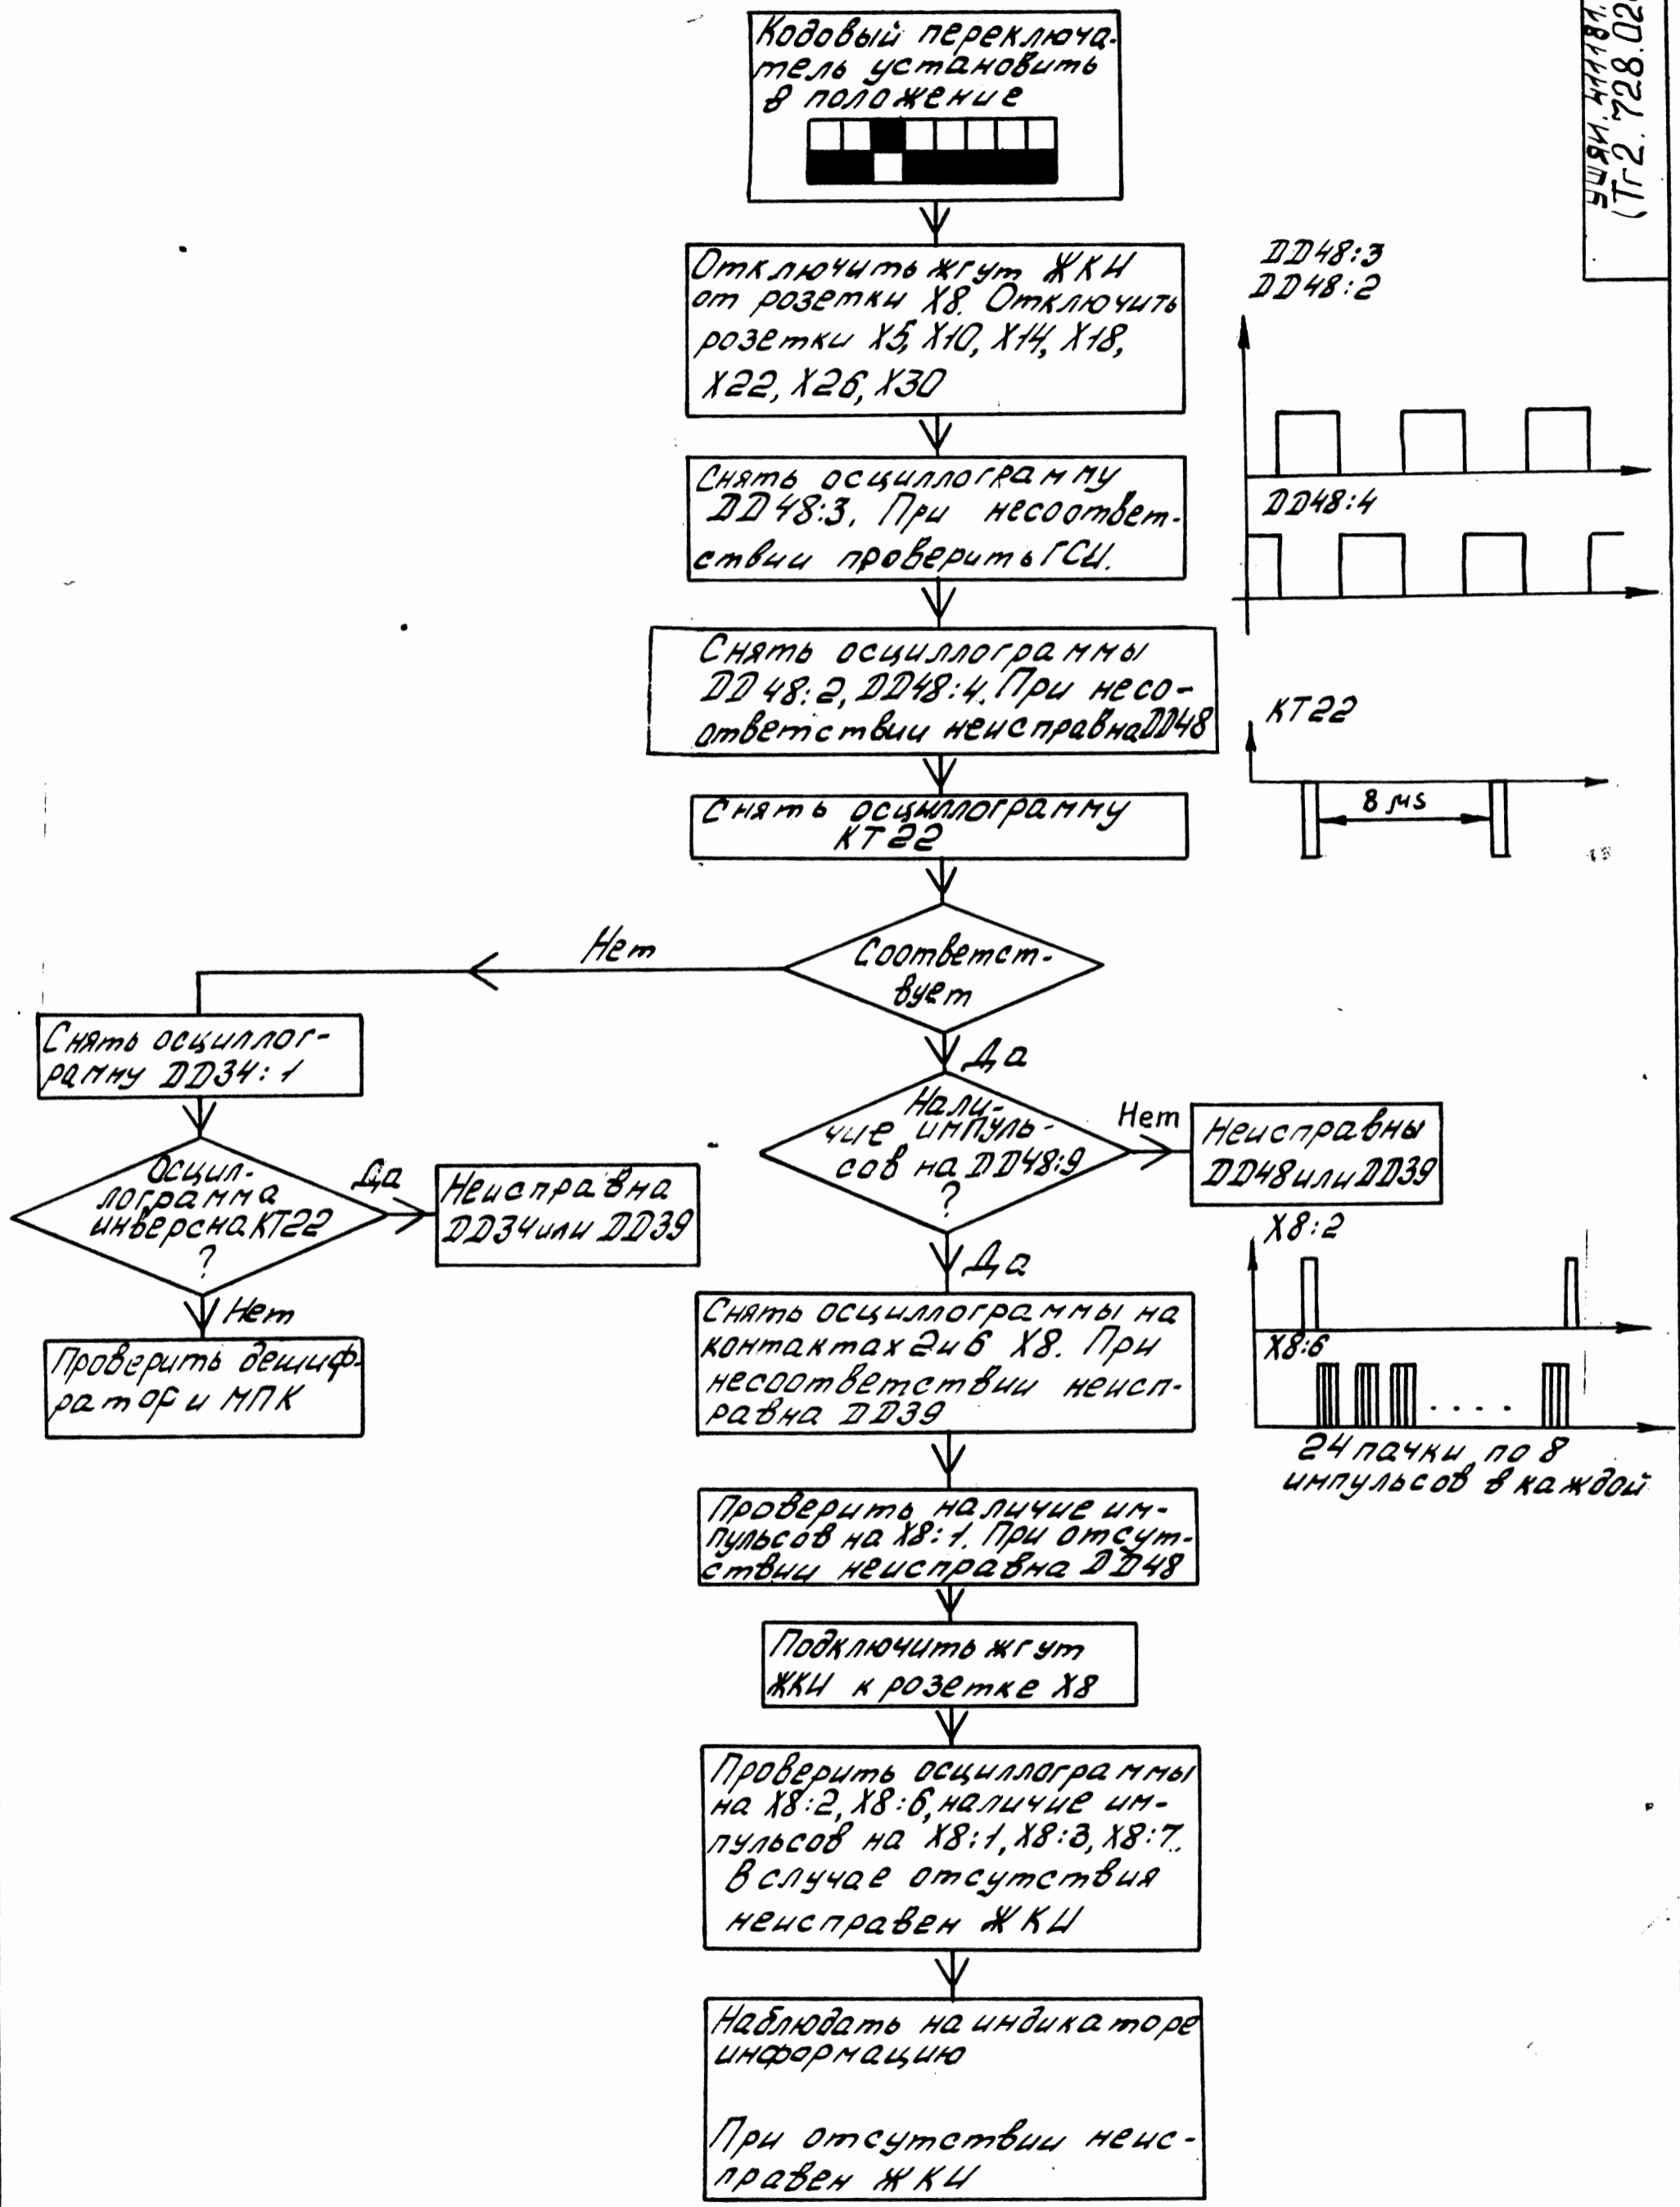 Кодовый переключа-
тель установить
в положение
Отключить жгут ЖКИ
от розетки X8. Отключить
розетки X5, X10, X14, X18,
X22, X26, X30
Снять осциллограмму
DD48:3. При несоответ-
ствии проверить ГСИ.
Снять осциллограммы
DD48:2, DD48:4. При несо-
ответствии неисправна DD48
Снять осциллограмму
КТ22
Соответст-
вует
Нет
Да
Снять осциллог-
рамму DD34:1
Осцил-
лограмма
инверсна КТ22
?
Да
Неисправна
DD34 или DD39
Нет
Проверить дешиф-
ратор и МПК
Нали-
чие импуль-
сов на DD48:9
?
Нет
Неисправны
DD48 или DD39
Да
Снять осциллограммы на
контактах 2 и 6 X8. При
несоответствии неисп-
равна DD39
Проверить наличие им-
пульсов на X8:1. При отсут-
ствии неисправна DD48
Подключить жгут
ЖКИ к розетке X8
Проверить осциллограммы
на X8:2, X8:6, наличие им-
пульсов на X8:1, X8:3, X8:7.
В случае отсутствия
неисправен ЖКИ
Наблюдать на индикаторе
информацию
При отсутствии неис-
правен ЖКИ
DD48:3
DD48:2
DD48:4
КТ22
8 μs
X8:2
X8:6
24 пачки по 8
импульсов в каждой
(Тг2.728.02